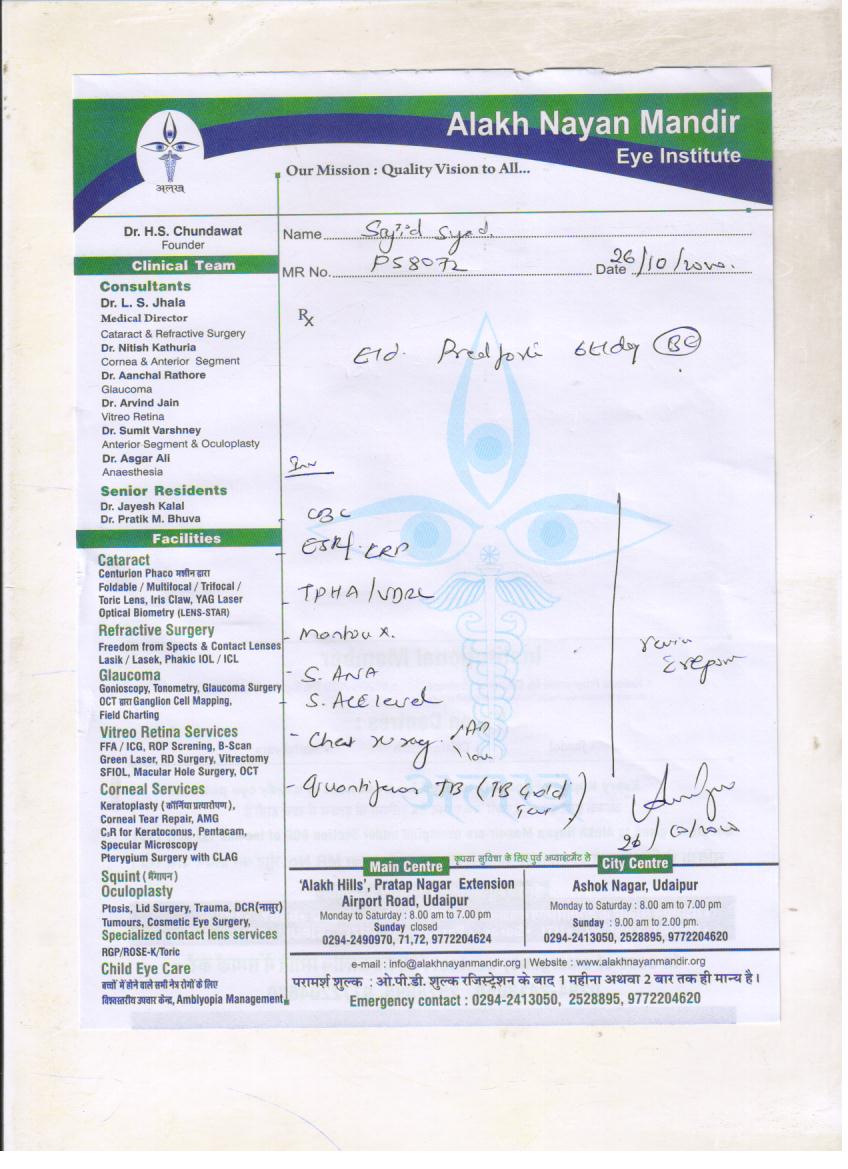 अलख
Alakh Nayan Mandir
Eye Institute
Our Mission : Quality Vision to All...
Dr. H.S. Chundawat
Founder
Clinical Team
Consultants
Dr. L. S. Jhala
Medical Director
Cataract & Refractive Surgery
Dr. Nitish Kathuria
Cornea & Anterior Segment
Dr. Aanchal Rathore
Glaucoma
Dr. Arvind Jain
Vitreo Retina
Dr. Sumit Varshney
Anterior Segment & Oculoplasty
Dr. Asgar Ali
Anaesthesia
Senior Residents
Dr. Jayesh Kalal
Dr. Pratik M. Bhuva
Facilities
Cataract
Centurion Phaco मशीन द्वारा
Foldable / Multifocal / Trifocal /
Toric Lens, Iris Claw, YAG Laser
Optical Biometry (LENS-STAR)
Refractive Surgery
Freedom from Spects & Contact Lenses
Lasik / Lasek, Phakic IOL / ICL
Glaucoma
Gonioscopy, Tonometry, Glaucoma Surgery
OCT द्वारा Ganglion Cell Mapping,
Field Charting
Vitreo Retina Services
FFA / ICG, ROP Screning, B-Scan
Green Laser, RD Surgery, Vitrectomy
SFIOL, Macular Hole Surgery, OCT
Corneal Services
Keratoplasty (कॉर्निया प्रत्यारोपण),
Corneal Tear Repair, AMG
C3R for Keratoconus, Pentacam,
Specular Microscopy
Pterygium Surgery with CLAG
Squint (भैंगापन)
Oculoplasty
Ptosis, Lid Surgery, Trauma, DCR(नासुर)
Tumours, Cosmetic Eye Surgery,
Specialized contact lens services
RGP/ROSE-K/Toric
Child Eye Care
बच्चों में होने वाले सभी नेत्र रोगों के लिए
विश्वस्तरीय उपचार केन्द्र, Amblyopia Management
Name Sajid Syed.
MR No. P58072 Date 26/10/2020.
Rx
E/d. Predforte 6t/day BE
Inv
- CBC
- ESR/ CRP
- TPHA / VDRL
- Mantoux.
- S. ANA
- S. ACE level
- Chest xray
- Quantiferon TB (TB Gold
26/10/2020
Main Centre
कृपया सुविधा के लिए पूर्व अपाइंटमेंट ले
City Centre
'Alakh Hills', Pratap Nagar Extension
Airport Road, Udaipur
Monday to Saturday : 8.00 am to 7.00 pm
Sunday closed
0294-2490970, 71,72, 9772204624
Ashok Nagar, Udaipur
Monday to Saturday : 8.00 am to 7.00 pm
Sunday : 9.00 am to 2.00 pm.
0294-2413050, 2528895, 9772204620
e-mail : info@alakhnayanmandir.org | Website : www.alakhnayanmandir.org
परामर्श शुल्क : ओ.पी.डी. शुल्क रजिस्ट्रेशन के बाद 1 महीना अथवा 2 बार तक ही मान्य है।
Emergency contact : 0294-2413050, 2528895, 9772204620